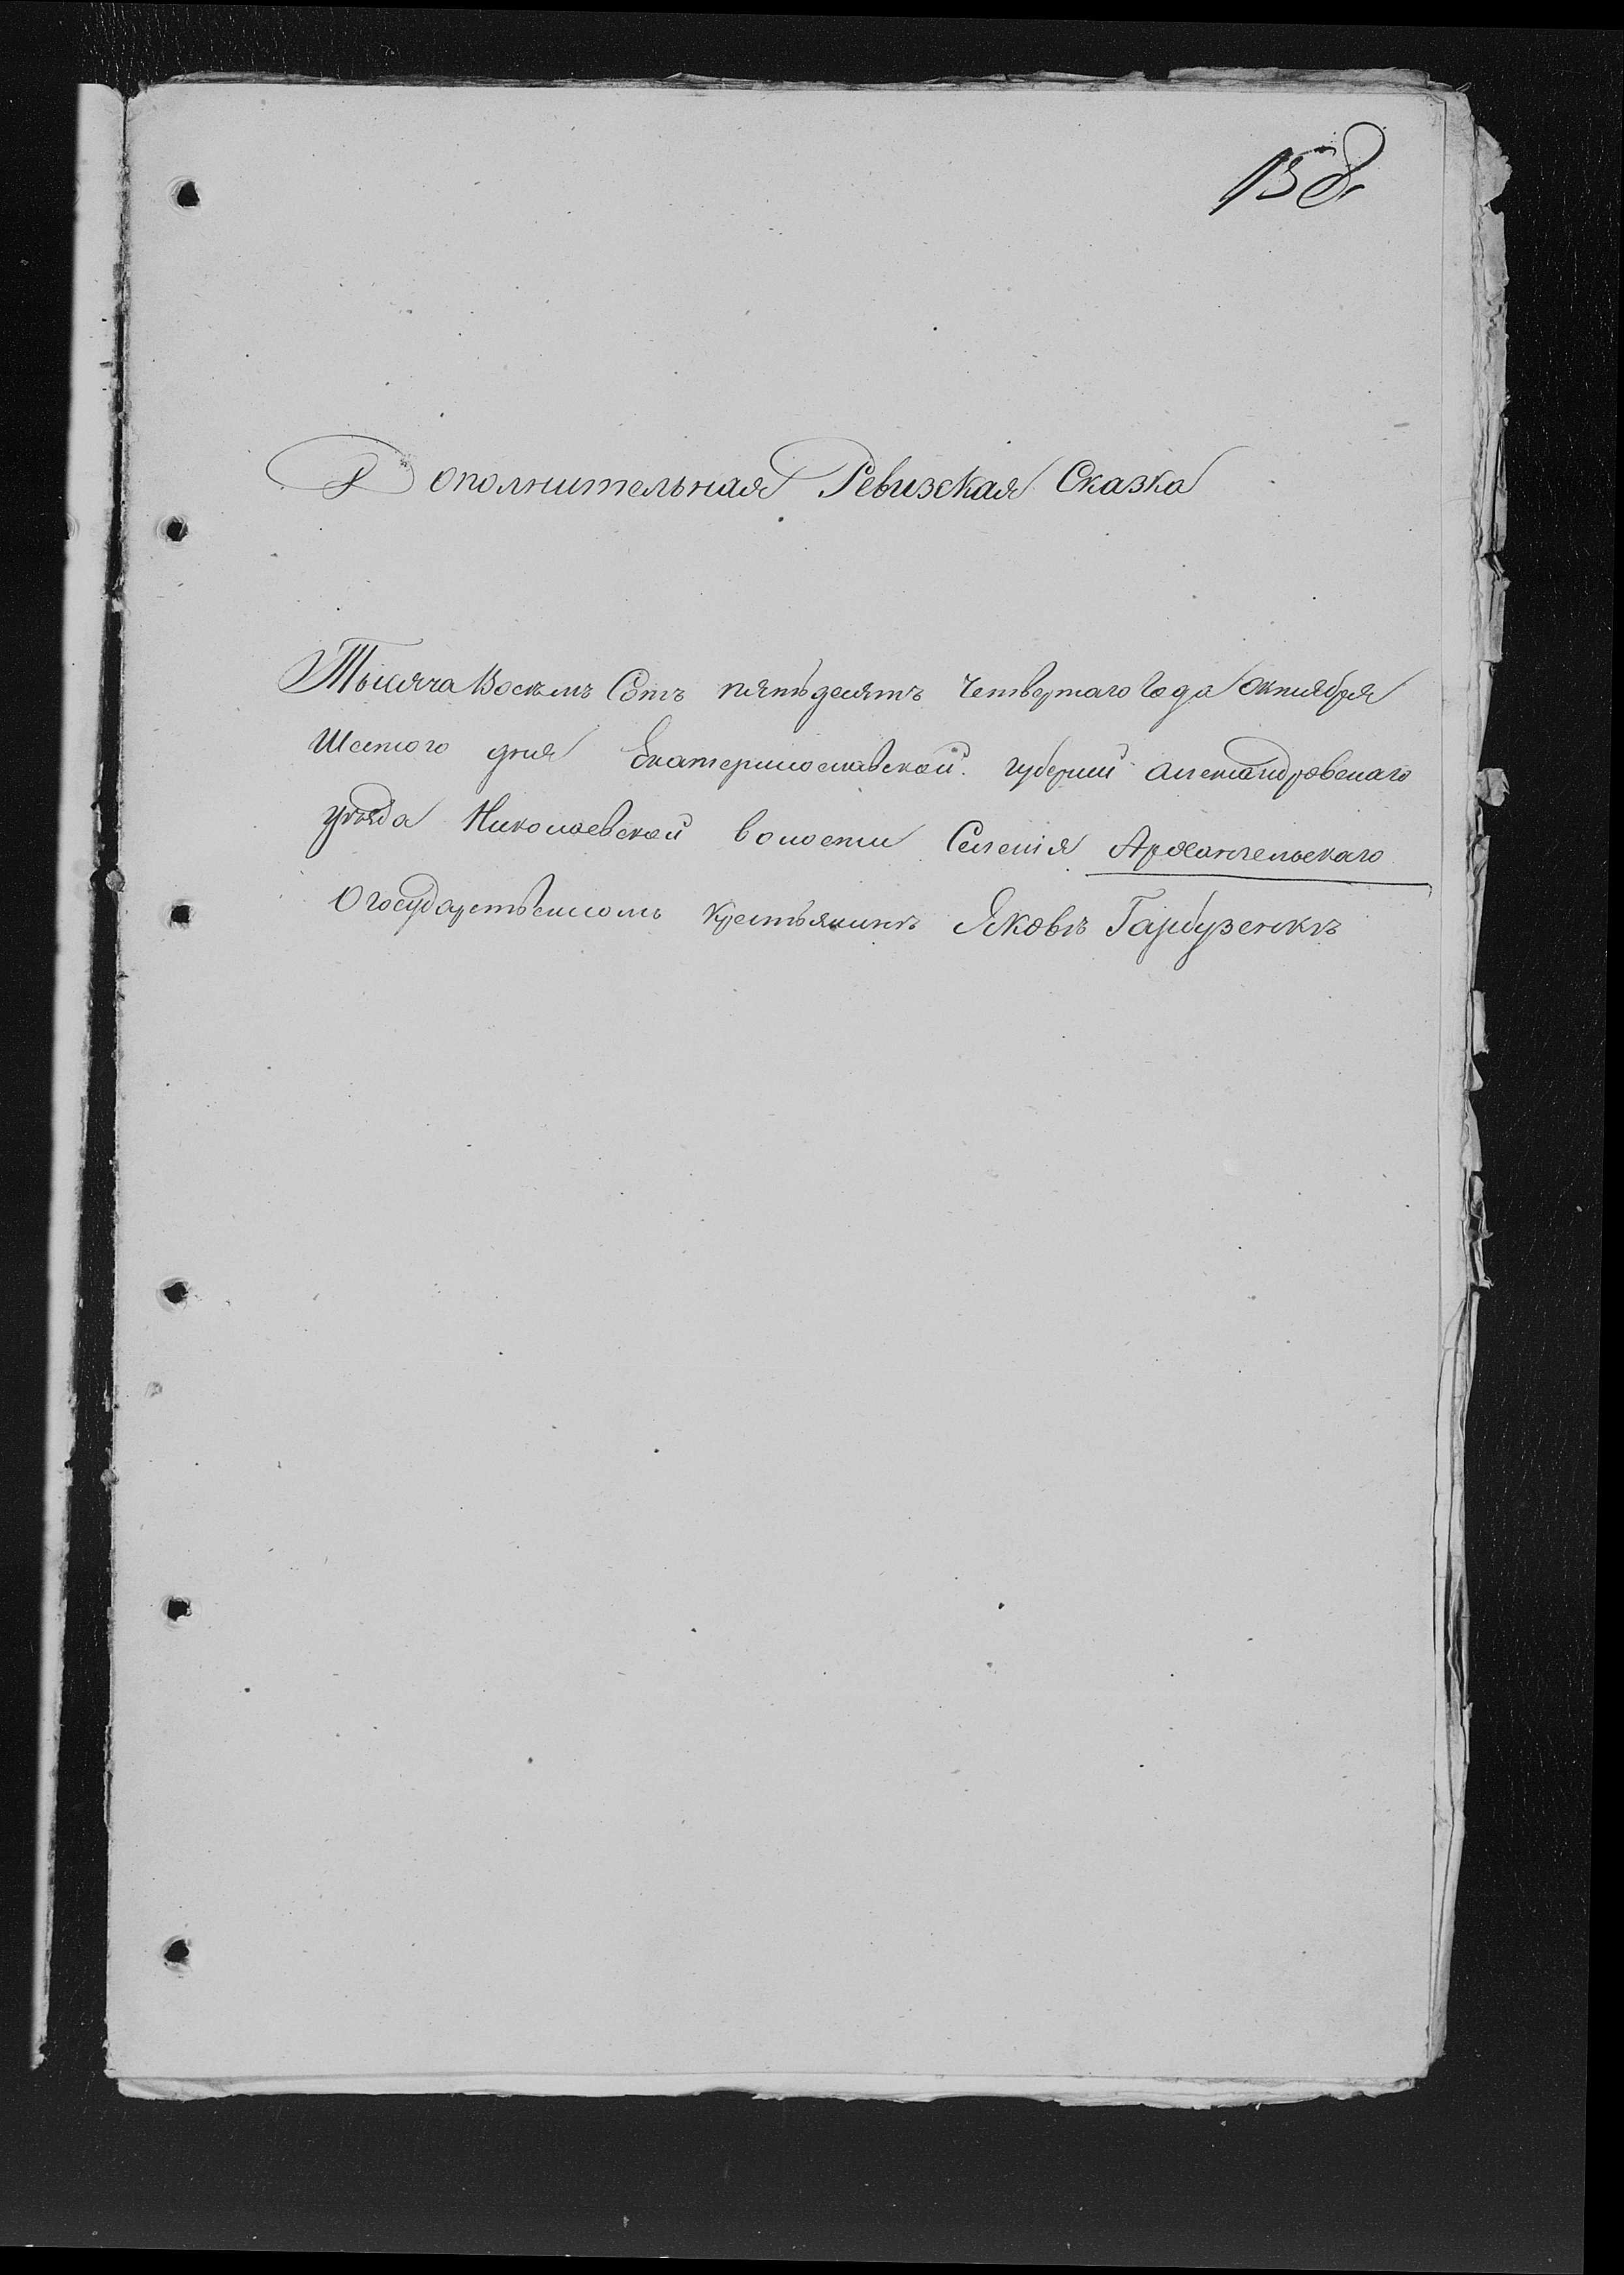 158
Дополнительная Ревизская Сказка
Тысяча Восемъ Сотъ пятьдесятъ Четвертаго Года Октября
Шестого дня Екатеринославской губернии Александровскаго
уѣзда Николаевской волости Селенія Архангельскаго
О государственномъ крестьянинѣ Яковѣ Гарбузенкѣ